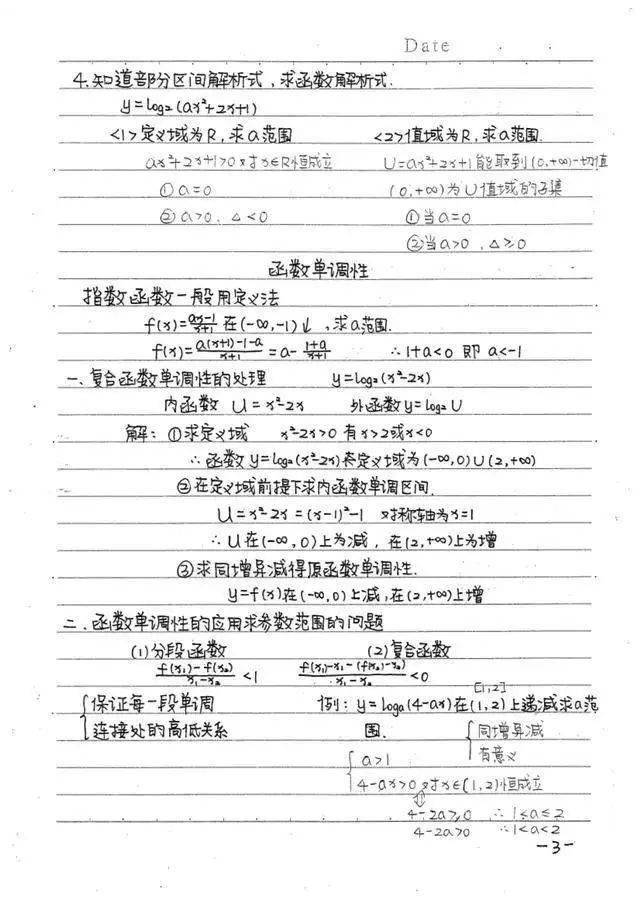 Date
4.知道部分区间解析式,求函数解析式.
y=log₂(ax²+2x+1)
<1>定义域为R,求a范围 <2>值域为R,求a范围.
ax²+2x+1>0对x∈R恒成立 U=ax²+2x+1能取到(0,+∞)一切值
①a=0 (0,+∞)为U值域的子集
②a>0、△<0 ①当a=0
②当a>0,△≥0
函数单调性
指数函数一般用定义法
f(x)=(ax-1)/(x+1)在(-∞,-1)↓,求a范围.
f(x)=(a(x+1)-1-a)/(x+1)=a-(1+a)/(x+1) ∴1+a<0 即 a<-1
一、复合函数单调性的处理 y=log₂(x²-2x)
内函数 U=x²-2x 外函数y=log₂U
解:①求定义域 x²-2x>0 有x>2或x<0
∴函数y=log₂(x²-2x)定义域为(-∞,0)∪(2,+∞)
②在定义域前提下求内函数单调区间.
U=x²-2x=(x-1)²-1 对称轴为x=1
∴U在(-∞,0)上为减,在(2,+∞)上为增
③求同增异减得原函数单调性.
y=f(x)在(-∞,0)上减,在(2,+∞)上增
二、函数单调性的应用求参数范围的问题
(1)分段函数 (2)复合函数
(f(x₁)-f(x₂))/(x₁-x₂)<1 (f(x₁)-x₁-(f(x₂)-x₂))/(x₁-x₂)<0
[1,2]
{保证每一段单调 例:y=logₐ(4-ax)在(1,2)上递减求a范
连接处的高低关系 围. {同增异减
{a>1 有意义
4-ax>0对x∈(1,2)恒成立
⇕
4-2a≥0 ∴1<a≤2
4-2a>0 ∴1<a<2
-3-